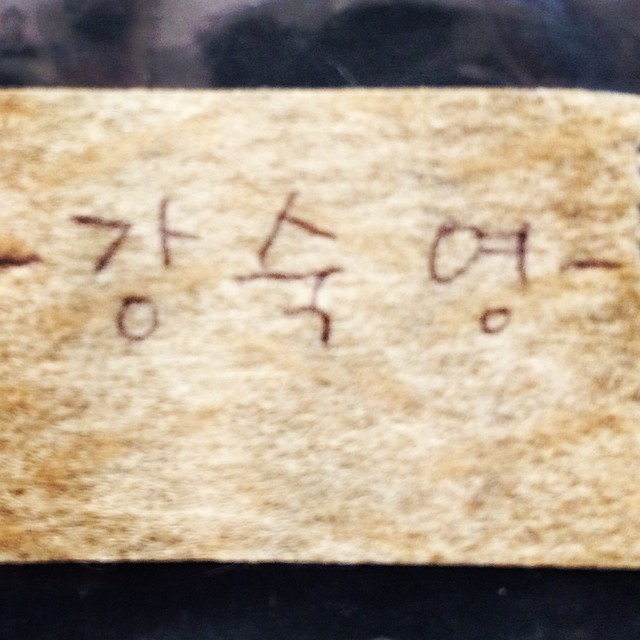 - 강숙영 -